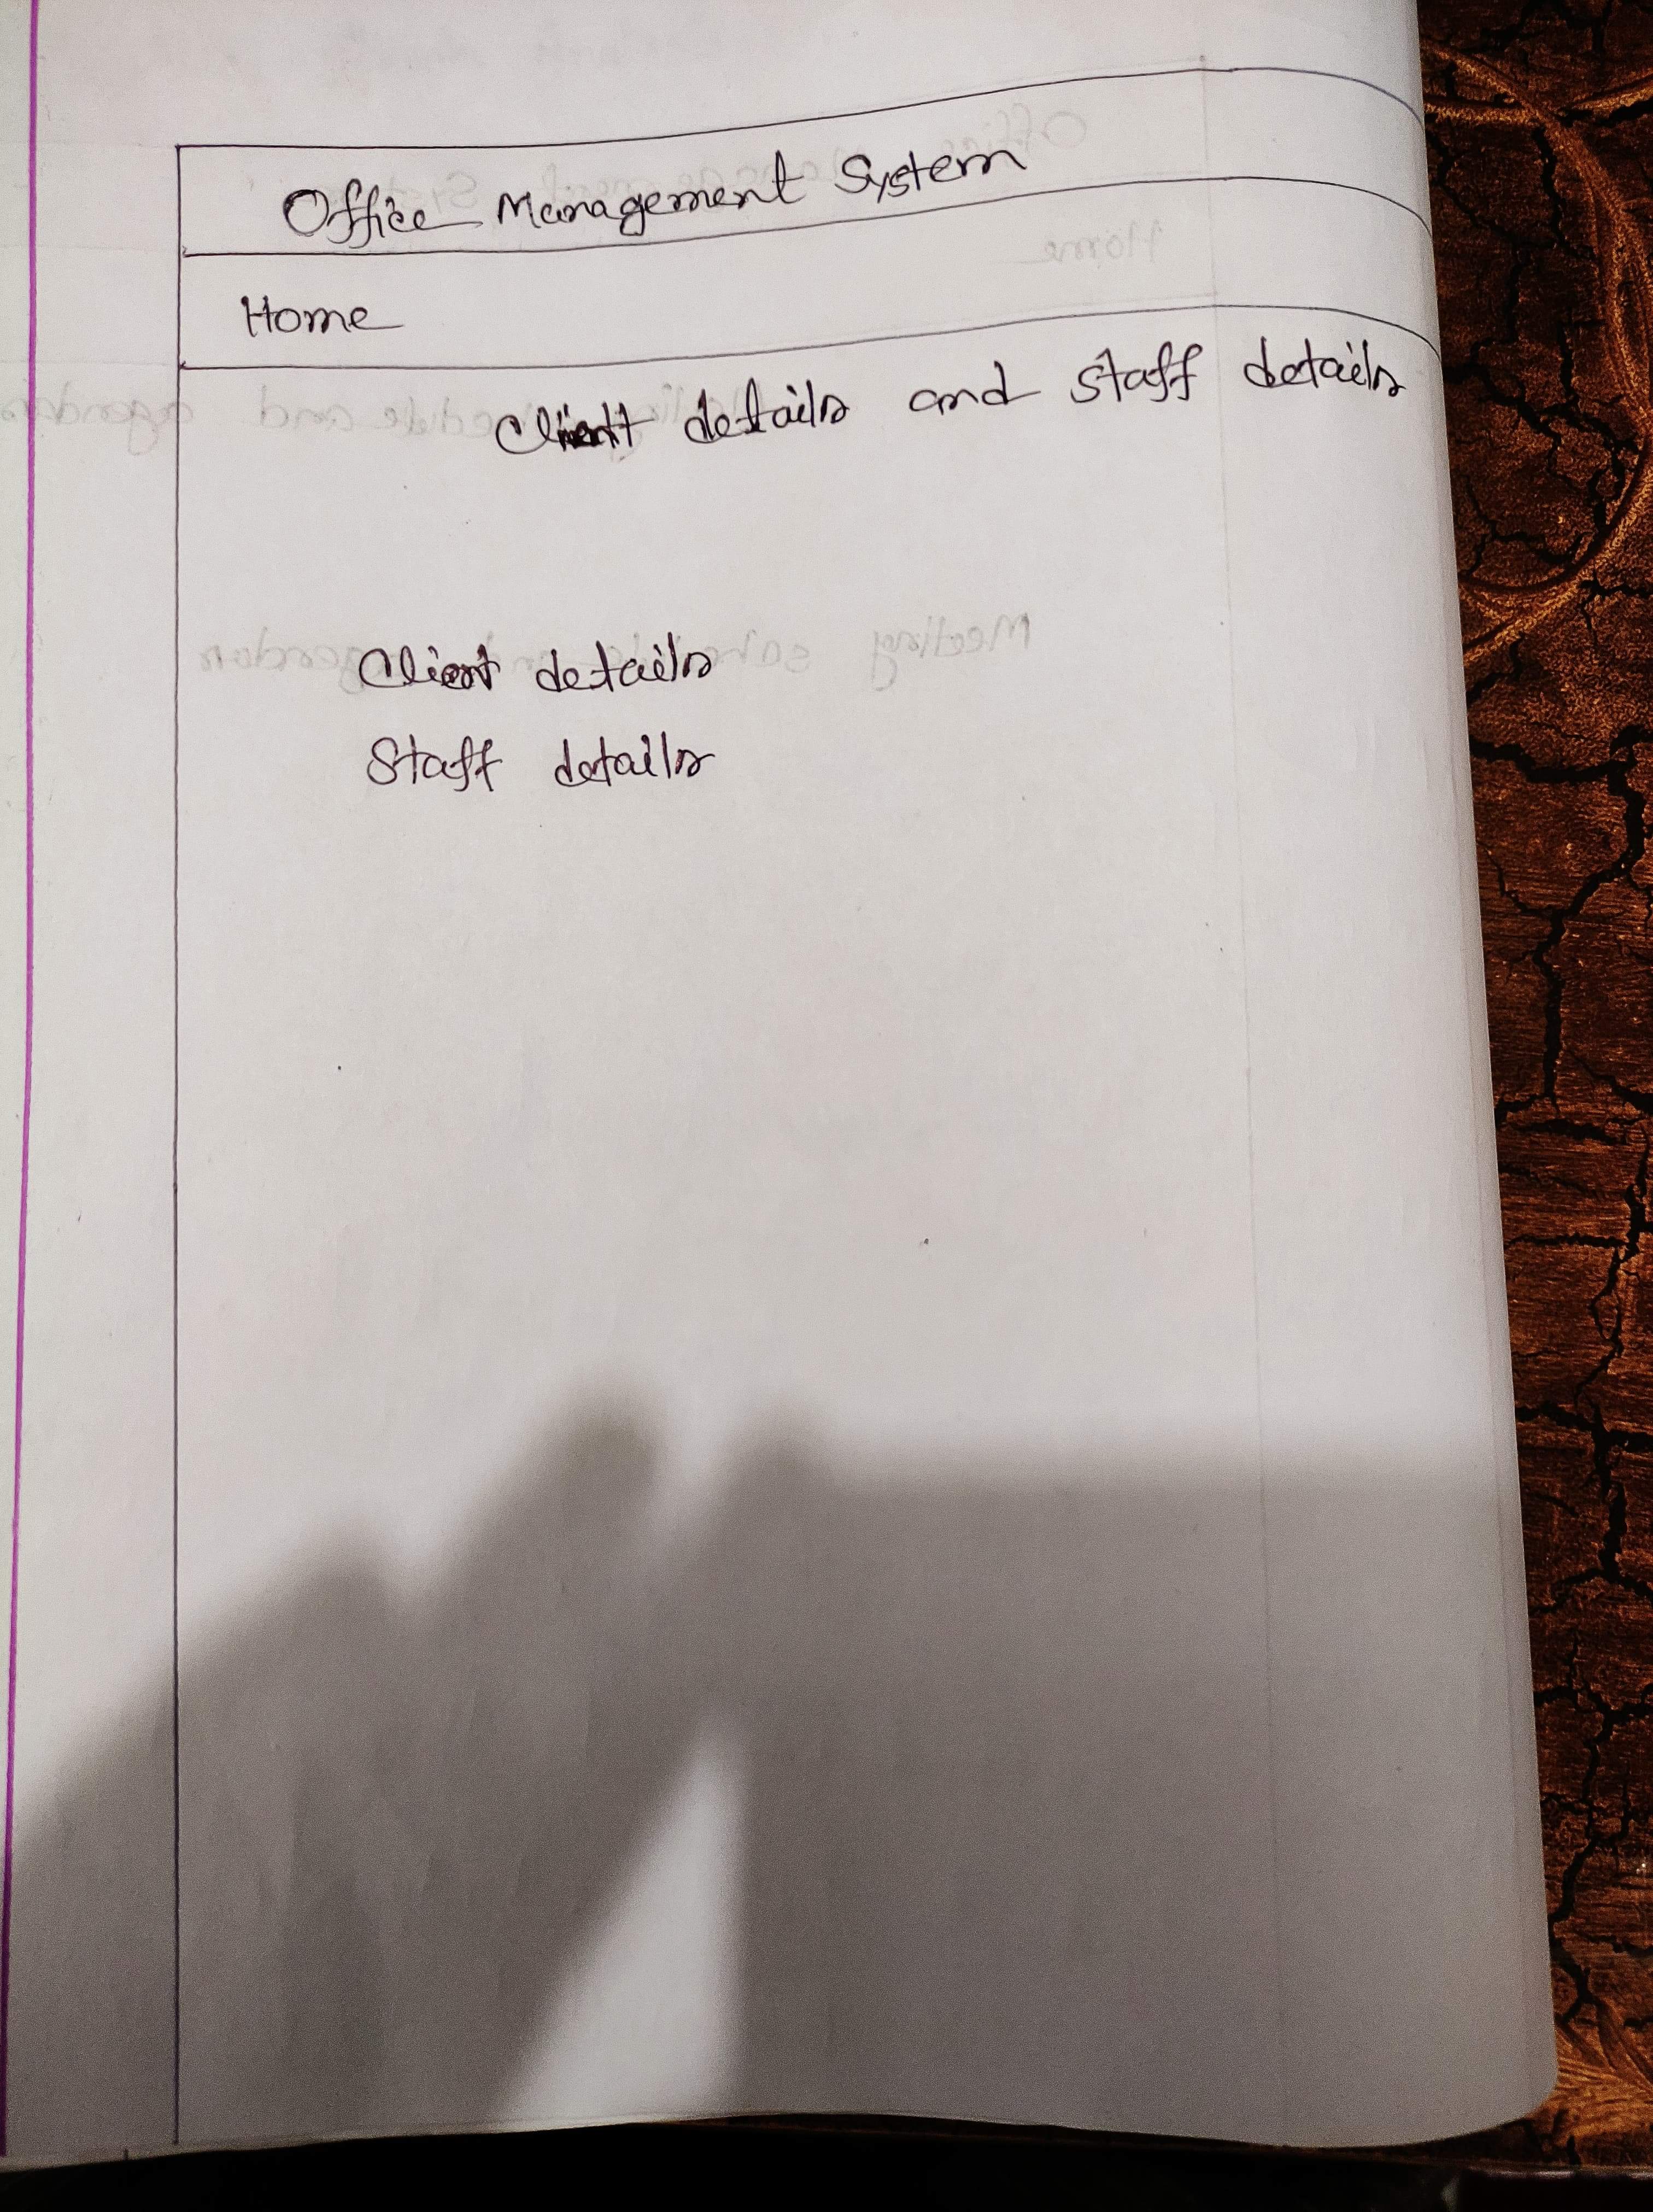 Office Management System
Home
Client details and staff details
Client details
Staff details